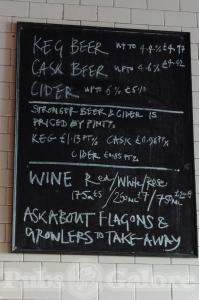 KEG BEER UP TO 4.4% £4.47
CASK BEER UPTO 4.6% £4.42
CIDER UPTO 6% £5
STRONGER BEER & CIDER IS
PRICED BY PINT%
KEG £1.13 PT% CASK £0.96 PT%
CIDER £0.85 PT%
WINE Red/White/Rose
175ml £5 / 250ml £7 / 750ml
ASK ABOUT FLAGONS &
GROWLERS TO TAKE-AWAY